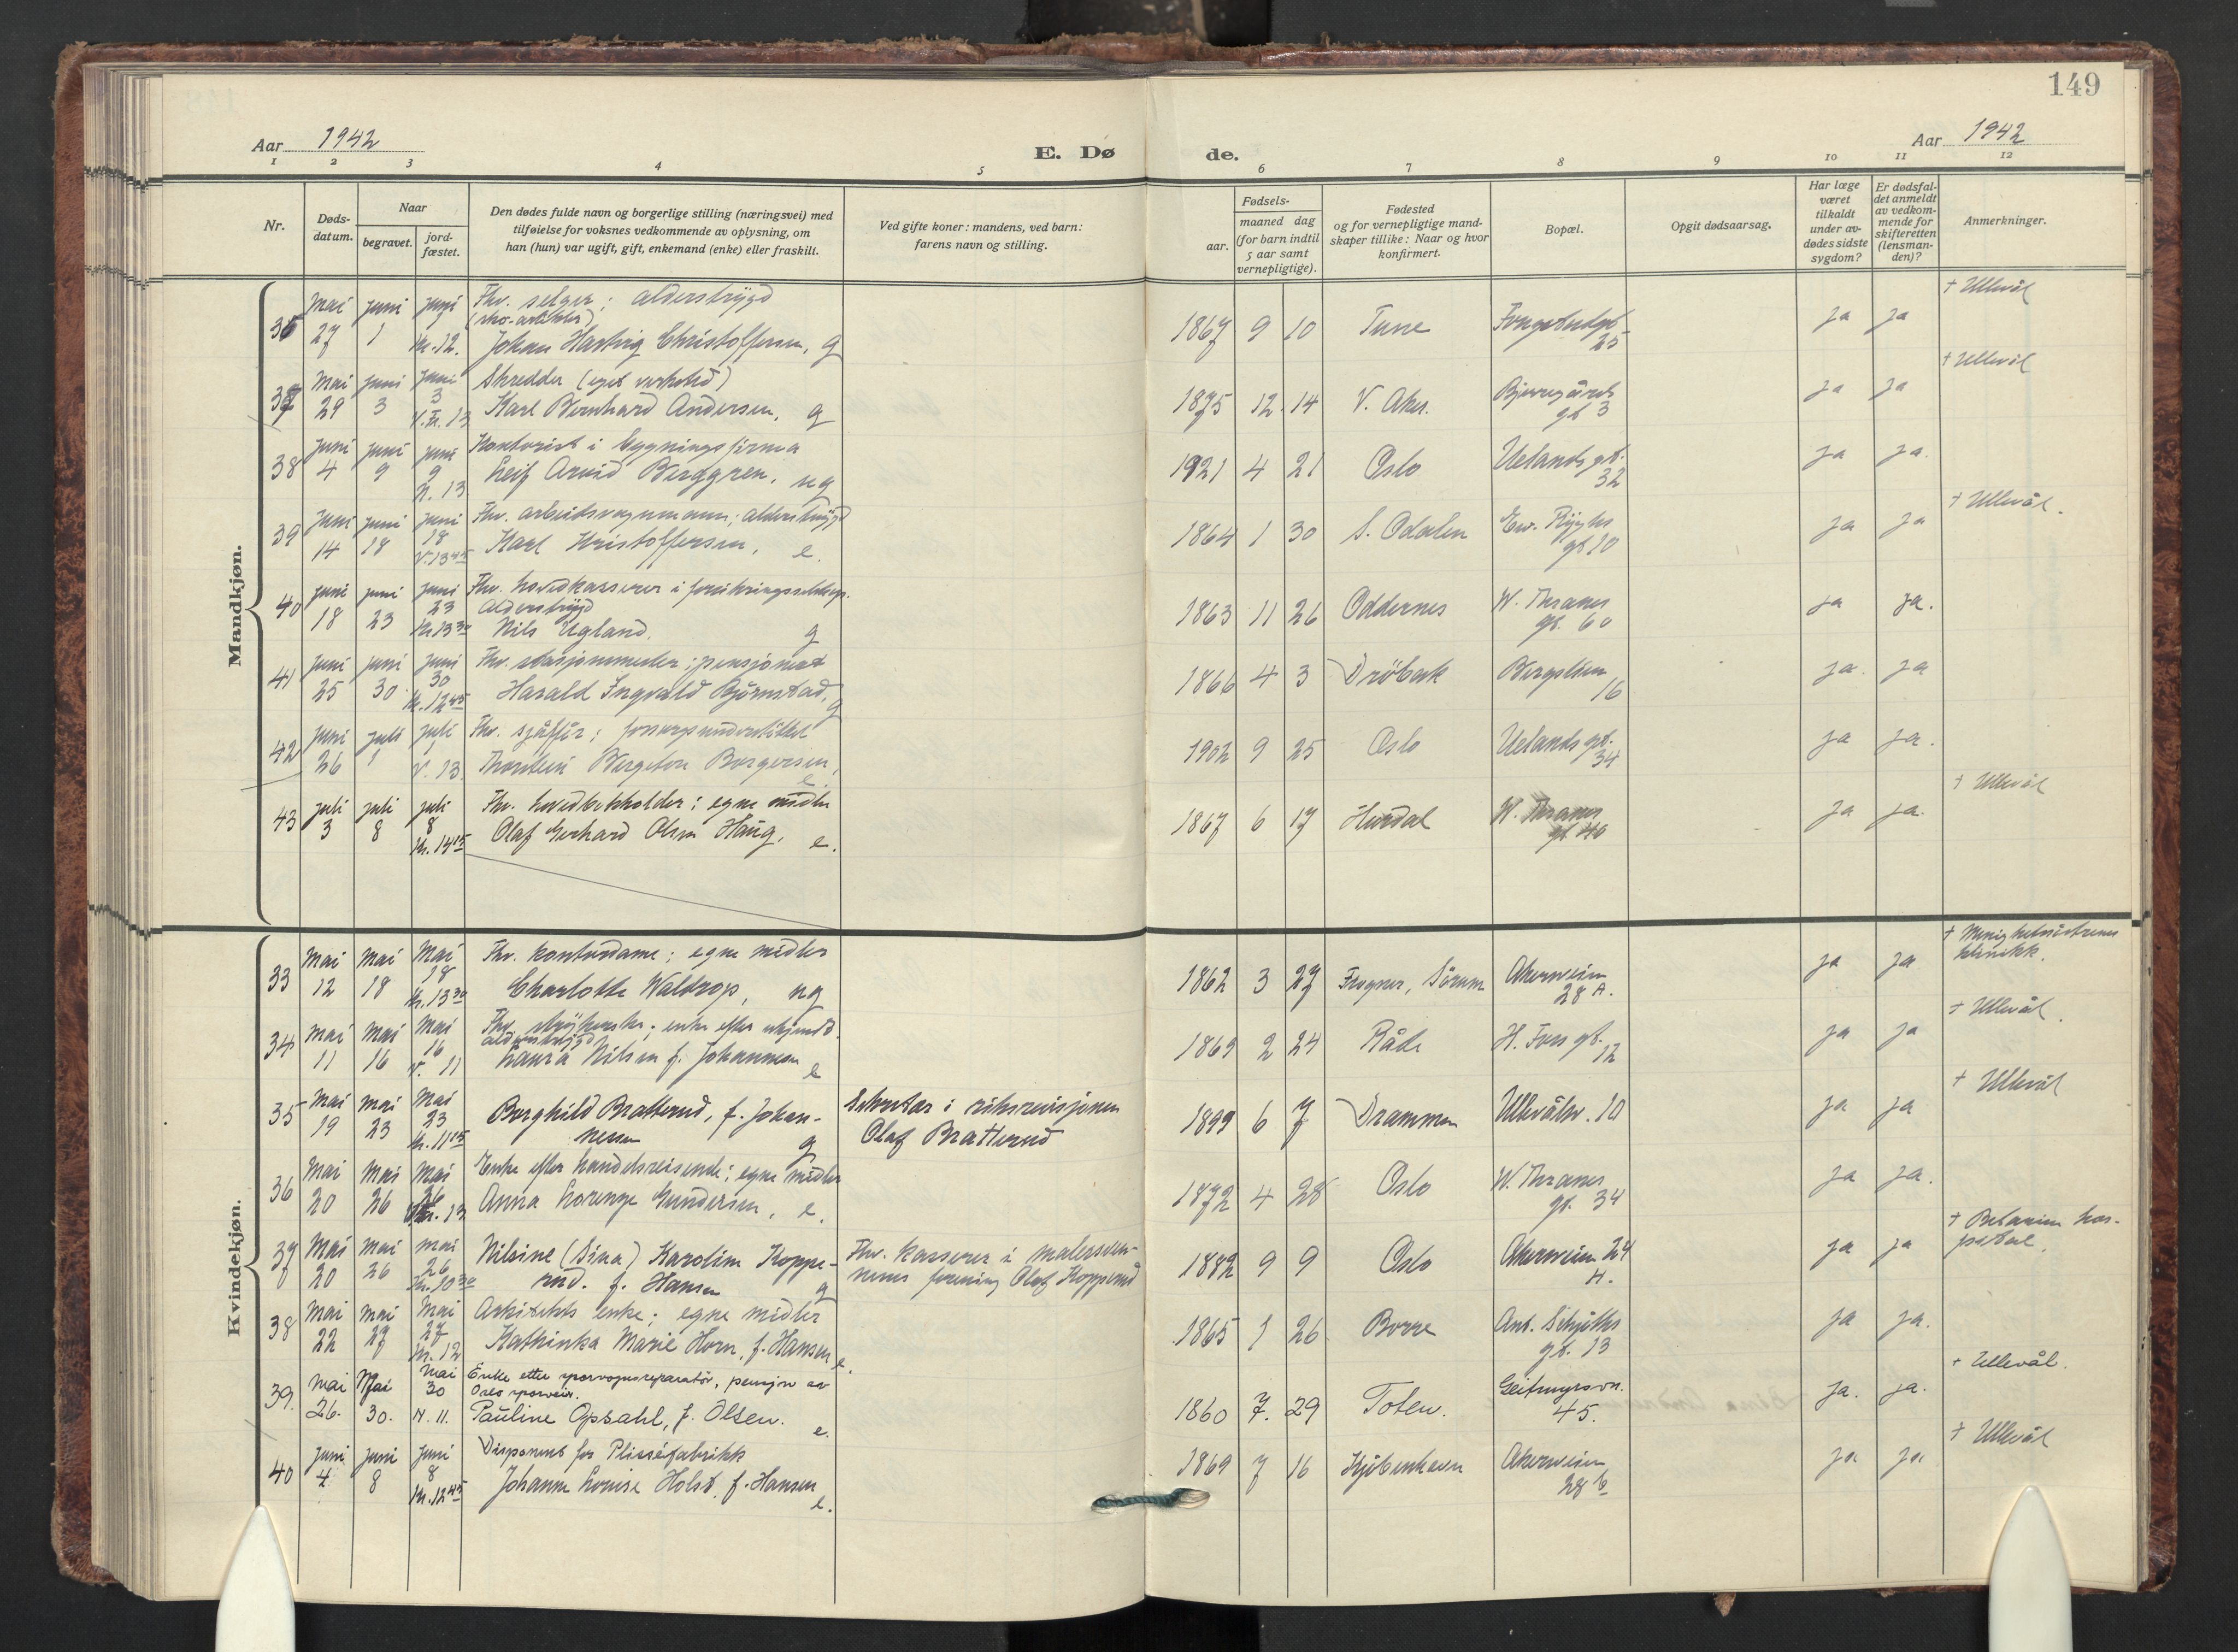 149
Aar 1942
E. Dø de.
Aar 1942
1 2 3 4 5 6 7 8 9 10 11 12
Nr.
Døds-
datum.
Naar
begravet.
jord-
fæstet.
Den dødes fulde navn og borgerlige stilling (næringsvei) med
tilføielse for voksnes vedkommende av oplysning, om
han (hun) var ugift, gift, enkemand (enke) eller fraskilt.
Ved gifte koner: mandens, ved barn:
farens navn og stilling.
Fødsels-
aar.
maaned dag
(for barn indtil
5 aar samt
vernepligtige).
Fødested
og for vernepligtige mand-
skaper tillike: Naar og hvor
konfirmert.
Bopæl.
Opgit dødsaarsag.
Har læge
været
tilkaldt
under av-
dødes sidste
sygdom?
Er dødsfal-
det anmeldt
av vedkom-
mende for
skifteretten
(lensman-
den)?
Anmerkninger.
Mandkjøn.
Mai juni juni Fhv. selger; alderstrygd † Ullevål
36 27 1 kl. 12. Johan Hartvig Christoffersen, g 1867 9 10 Tune 25 ja ja
Mai juni juni Skredder (eget verksted) † Ullevål
37 29 3 3 Karl Bernhard Andersen, g 1875 12 14 V. Aker. Bjerregårds
gt 3 ja ja
juni juni juni Kontorist i bygningsfirma
38 4 9 9 Leif Arvid Berggren, ug 1921 4 21 Oslo Uelands gt.
32 ja ja.
juni juni juni Fhv. arbeidsvognmann; alderstrygd † Ullevål.
39 14 18 18 Karl Kristoffersen, e. 1864 1 30 S. Odalen Ew. Ryghs
gt 10 ja ja
juni juni juni Fhv. hovedkasserer i forsikringsselskap.
Alderstrygd
40 18 23 23 kl. 13 30 Nils Ugland. g 1863 11 26 Oddernes W. Thranes
gt. 60 ja ja.
juni juni juni Fhv. stasjonsmester; pensjonert
41 25 30 30 kl. 12 45 Harald Ingvald Bjørnstad, g 1866 4 3 Drøbak Bergslien
16 ja. ja
juni juli juli Fhv. sjåfør; forsorgsunderstøttet
42 26 1 1 V. 13. Borgersen, 1902 9 25 Oslo Uelands gt.
34 ja ja.
juli juli juli Fhv. hovedbokholder; egne midler † Ullevål
43 3 8 8 kl. 14 15 Olaf Gerhard Olsen Haug, e. 1867 6 17 Hurdal W. Thranes
gt 40 ja ja.
Kvindekjøn.
Mai Mai Mai Fhv. kontordame; egne midler † Menighetssøstrenes
klinikk.
33 12 18 18 kl. 13 30 Charlotte Waldrop, ug 1862 3 27 Frogner, Sørum Akersveien
28 A. ja ja
Mai Mai Mai Fhv. strykerske; enke efter † Ullevål.
alderstrygd
34 11 16 16 V. 11 Laura Nilsen f. Johannessen e 1869 2 24 Råde H. Foss gt.
12 ja ja
Mai Mai Mai † Ullevål
35 19 23 23 kl. 11 15 Borghild Bratterud, f. Johan-
nessen g Sekretær i riksrevisjonen
Olaf Bratterud 1899 6 7 Drammen Ullevålsv. 10 ja ja
Mai Mai Mai Enke efter handelsreisende; egne midler
36 20 26 26 kl. 13 Anna Lorenze Gundersen, e. 1872 4 28 Oslo W. Thranes
gt. 34 ja ja.
Mai Mai Mai Nilsine (Sina) Karoline Koppe-
rud. f. Hansen g Fhv. kasserer i malersven-
nenes forening Olaf Kopperud † Betanien hos-
pital.
37 20 26 26 kl. 10 30 1882 9 9 Oslo Akersveien 24
H. ja ja
Mai Mai Mai Arkitekts enke; egne midler
38 22 27 27 kl. 12 Kathinka Marie Horn, f. Hansen e. 1865 1 26 Borre Ant. Schjøths
gt. 13 ja ja.
Mai Mai Mai Enke etter sporvognsreparatør, pensjon av
Oslo sporveier. † Ullevål.
39. 26. 30. 30 kl. 11. Pauline Opsahl, f. Olsen. e. 1860 7. 29 Toten. Geitmyrsvn.
45. ja. ja.
juni juni juni Disponent for Plisséfabrikk † Ullevål
40 4 8 8 kl. 12 45 Johanne Louise Holst, f. Hansen e. 1869 7 16 Kjøbenhavn Akersveien
28 b ja ja